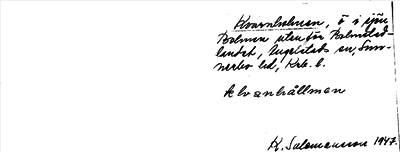 Kvarnholmen, ö i sjön
Bolmen utanför Bolmstad-
landet, Angelstads sn, Sun-
nerbo hd, Krb. l.
kvanhållman
K. Salomonsson 1947.